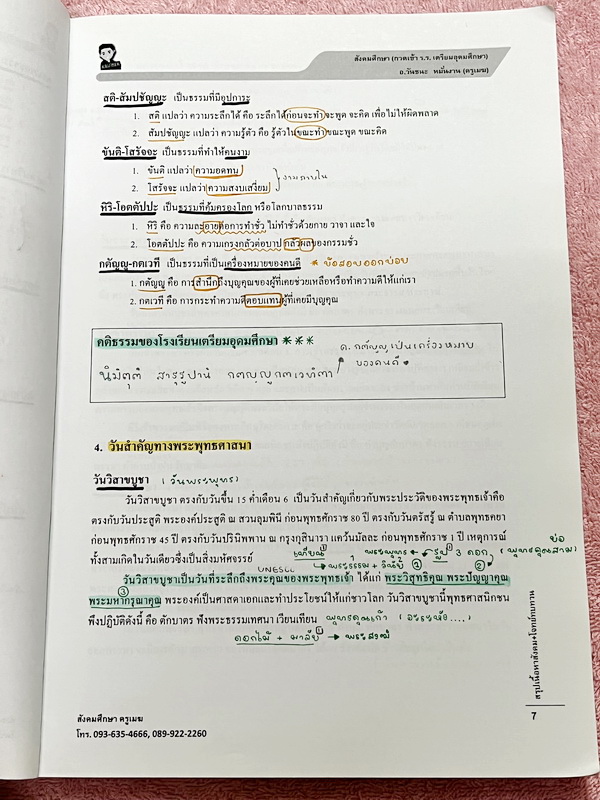 สังคมศึกษา (กวดเข้า ร.ร. เตรียมอุดมศึกษา)
อ.วันชนะ หมั่นงาน (ครูเมฆ)
สติ-สัมปชัญญะ เป็นธรรมที่มีอุปการะ
1. สติ แปลว่า ความระลึกได้ คือ ระลึกได้ก่อนจะทำ จะพูด จะคิด เพื่อไม่ให้ผิดพลาด
2. สัมปชัญญะ แปลว่า ความรู้ตัว คือ รู้ตัวในขณะทำ ขณะพูด ขณะคิด
ขันติ-โสรัจจะ เป็นธรรมที่ทำให้คนงาม
1. ขันติ แปลว่า ความอดทน
งามภายใน
2. โสรัจจะ แปลว่า ความสงบเสงี่ยม
หิริ-โอตตัปปะ เป็นธรรมที่คุ้มครองโลก หรือโลกบาลธรรม
1. หิริ คือ ความละอายต่อการทำชั่ว ไม่ทำชั่วด้วยกาย วาจา และใจ
2. โอตตัปปะ คือ ความเกรงกลัวต่อบาป กลัวผลของกรรมชั่ว
กตัญญู-กตเวที เป็นธรรมที่เป็นเครื่องหมายของคนดี * ข้อสอบออกบ่อย
1. กตัญญู คือ การสำนึกถึงบุญคุณของผู้ที่เคยช่วยเหลือหรือทำความดีให้แก่เรา
2. กตเวที คือ การกระทำความดีตอบแทนผู้ที่เคยมีบุญคุณ
คติธรรมของโรงเรียนเตรียมอุดมศึกษา ***
ค. กตัญญูเป็นเครื่องหมาย
ของคนดี
นิมิตฺตํ สาธุรูปานํ กตญฺญูกตเวทิตา
4. วันสำคัญทางพระพุทธศาสนา
วันวิสาขบูชา (วันพระพุทธ)
วันวิสาขบูชา ตรงกับวันขึ้น 15 ค่ำเดือน 6 เป็นวันสำคัญเกี่ยวกับพระประวัติของพระพุทธเจ้าคือ
ตรงกับวันประสูติ พระองค์ประสูติ ณ สวนลุมพินี ก่อนพุทธศักราช 80 ปี ตรงกับวันตรัสรู้ ณ ตำบลพุทธคยา
ก่อนพุทธศักราช 45 ปี ตรงกับวันปรินิพพาน ณ กรุงกุสินารา แคว้นมัลละ ก่อนพุทธศักราช 1 ปี เหตุการณ์
ทั้งสามเกิดในวันเดียวซึ่งเป็นสิ่งมหัศจรรย์ เทียน พระพุทธ รูป 3 ดอก (พุทธคุณสาม)
UNESCO พระธรรม + วินัย
วันวิสาขบูชาเป็นวันที่ระลึกถึงพระคุณของพระพุทธเจ้า ได้แก่ พระวิสุทธิคุณ พระปัญญาคุณ
พระมหากรุณาคุณ พระองค์เป็นศาสดาเอกและทำประโยชน์ให้แก่ชาวโลก วันวิสาขบูชานี้พุทธศาสนิกชน
พึงปฏิบัติดังนี้ คือ ตักบาตร ฟังพระธรรมเทศนา เวียนเทียน พุทธคุณเก้า (อะระหัง....)
ดอกไม้ + มาลัย → พระสงฆ์
สรุปเนื้อหาสังคม+โจทย์ทบทวน
7
สังคมศึกษา ครูเมฆ
โทร. 093-635-4666, 089-922-2260